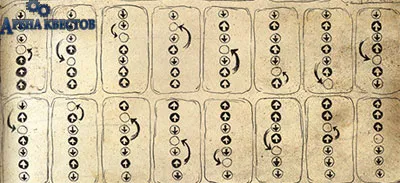 Арена квестов